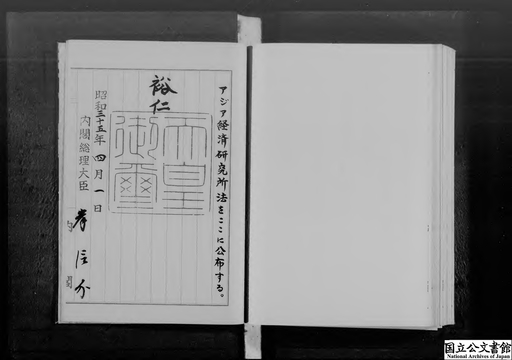 アジア経済研究所法をここに公布する。
裕仁
天皇御璽
昭和三十五年四月一日
内閣総理大臣 岸信介
国立公文書館
National Archives of Japan